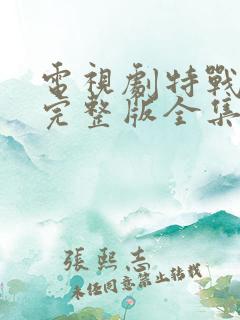 電視劇特戰
完整版全集
張熙志
未经同意禁止转载